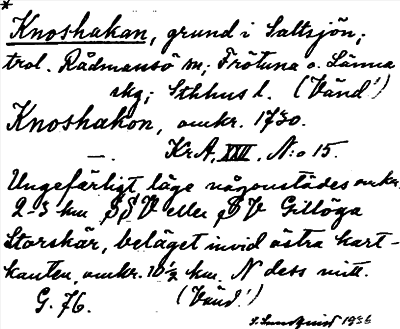 *
Knoshakan, grund i Saltsjön;
trol. Rådmansö sn; Frötuna o. Länna
skg; Sthlms l. (Vänd!)
Knoshakon, omkr. 1730.
—. Kr.A. XXII, N:o 15.
Ungefärligt läge någonstädes omkr.
2-3 km SSV eller SV Gillöga
Storskär, beläget invid östra kart-
kanten, omkr. 10 1/2 km. N dess mitt.
G. 76. (Vänd!)
1936